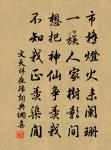 市橋燈火未闌珊
一簇人家樹影間
想把神仙爭我
不知我正羨渠閒
文天祥夜歸